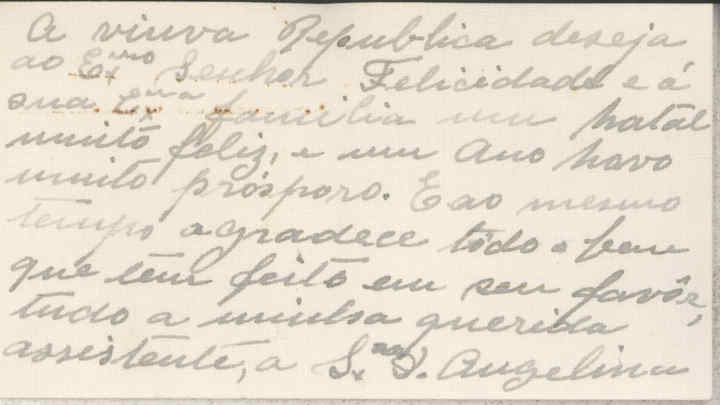 A viuva Republica deseja
ao Exmo Senhor Felicidade e á
sua Exma familia um Natal
muito feliz, e um Ano Novo
muito prósporo. E ao mesmo
tempo agradece todo o bem
que tem feito em seu favôr,
tudo a minha querida
assistente, a S.ra D. Angelina